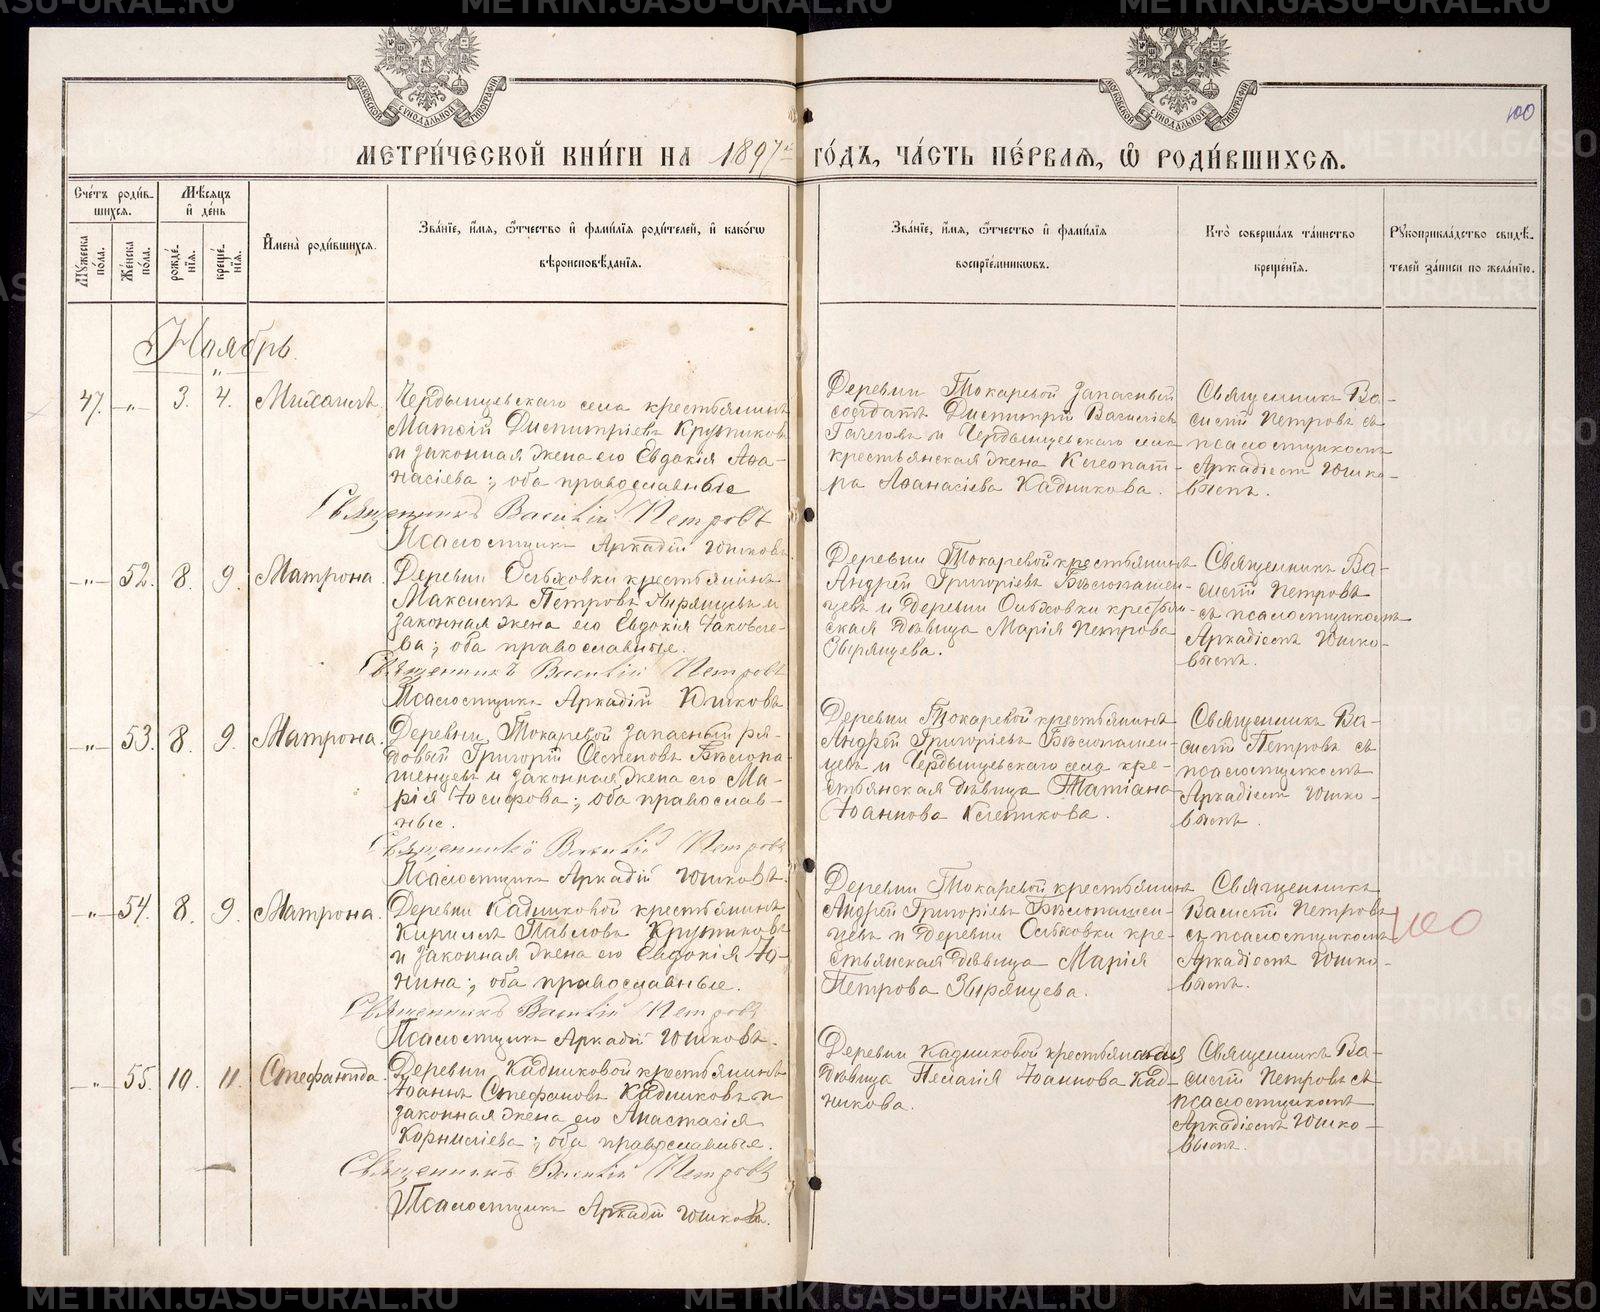 МЕТРИ́ЧЕСКОЙ КНИ́ГИ НА 1897й ГО́ДЪ, ЧА́СТЬ ПЕ́РВАЯ, Ѡ РОДИ́ВШИХСЯ.
100
Сче́тъ роди́в-
шихся.
Мѣсяцъ
и де́нь
Му́жеска по́ла.
Же́нска по́ла.
рожде́нїя.
креще́нїя.
И҆мена̀ роди́вшихся.
Зва́нїе, и҆́мя, ѻ҆́тчество и҆ фами́лїя роди́телей, и҆ како́гѡ
вѣроисповѣ́данїя.
Зва́нїе, и҆́мя, ѻ҆́тчество и҆ фами́лїя
воспрїе́мникѡвъ.
Кто̀ соверша́лъ та́инство
креще́нїя.
Рꙋкоприкла́дство свидѣ́-
телей за́писи по жела́нїю.
Ноябрь
47. —"— 3. 4. Михаилъ.
Чердынцевскаго села крестьянинъ
Матѳій Димитріевъ Кружиковъ
и законная жена его Евдокія Аѳа-
насіева; оба православные
Священникъ Василій Петровъ
Псаломщикъ Аркадій Юшковъ
Деревни Токаревой запасный
солдатъ Димитрій Василіевъ
и Чердынцевскаго села
крестьянская жена Клеопат-
ра Аѳанасіева Кадникова.
Священникъ Ва-
силій Петровъ съ
псаломщикомъ
Аркадіемъ Юшко-
вымъ.
—"— 52. 8. 9. Матрона.
Деревни Ольховки крестьянинъ
Максимъ Петровъ Зырянцевъ и
законная жена его Евдокія Іаковле-
ва; оба православные.
Священникъ Василій Петровъ
Псаломщикъ Аркадій Юшковъ
Деревни Токаревой крестьянинъ
Андрей Григоріевъ Бѣлопашен-
цевъ и деревни Ольховки крестьян-
ская дѣвица Марія Петрова
Зырянцева.
Священникъ Ва-
силій Петровъ
съ псаломщикомъ
Аркадіемъ Юшко-
вымъ.
—"— 53. 8. 9. Матрона.
Деревни Токаревой запасный ря-
довый Григорій Бѣлопа-
шенцевъ и законная жена его Ма-
рія Іосифова; оба православ-
ные.
Священникъ Василій Петровъ
Псаломщикъ Аркадій Юшковъ.
Деревни Токаревой крестьянинъ
Андрей Григоріевъ Бѣлопашен-
цевъ и Чердынцевскаго села кре-
стьянская дѣвица Татіана
Іоаннова Клепикова.
Священникъ Ва-
силій Петровъ съ
псаломщикомъ
Аркадіемъ Юшко-
вымъ.
—"— 54. 8. 9. Матрона.
Деревни Кадниковой крестьянинъ
Кириллъ Павловъ Кружиковъ
и законная жена его Евдокія Іо-
нина; оба православные.
Священникъ Василій Петровъ
Псаломщикъ Аркадій Юшковъ.
Деревни Токаревой крестьянинъ
Андрей Григоріевъ Бѣлопашен-
цевъ и деревни Ольховки кре-
стьянская дѣвица Марія
Петрова Зырянцева.
Священникъ
Василій Петровъ
съ псаломщикомъ
Аркадіемъ Юшко-
вымъ.
100
—"— 55. 10. 11. Стефанида.
Деревни Кадниковой крестьянинъ
Іоаннъ Стефановъ Кадниковъ и
законная жена его Анастасія
Корниліева; оба православные.
Священникъ Василій Петровъ
Псаломщикъ Аркадій Юшковъ.
Деревни Кадниковой крестьянская
дѣвица Пелагія Іоаннова Кад-
никова.
Священникъ Ва-
силій Петровъ съ
псаломщикомъ
Аркадіемъ Юшко-
вымъ.
METRIKI.GASO-URAL.RU